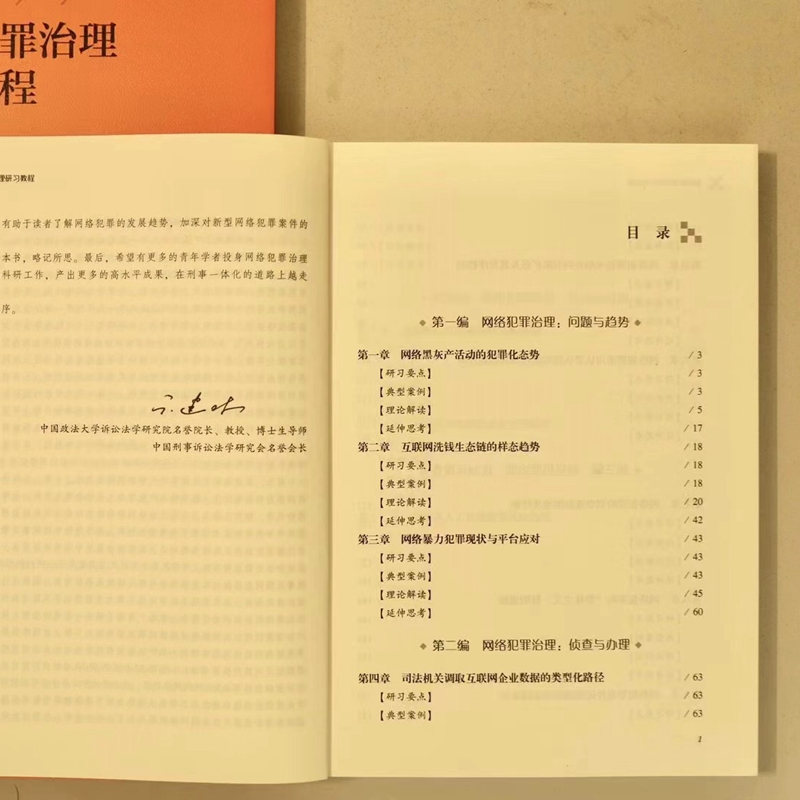 罪治理
程
理研习教程
有助于读者了解网络犯罪的发展趋势，加深对新型网络犯罪案件的
本书，略记所思。最后，希望有更多的青年学者投身网络犯罪治理
科研工作，产出更多的高水平成果，在刑事一体化的道路上越走
序。
中国政法大学诉讼法学研究院名誉院长、教授、博士生导师
中国刑事诉讼法学研究会名誉会长
目 录
第一编 网络犯罪治理：问题与趋势
第一章 网络黑灰产活动的犯罪化态势 / 3
【研习要点】 / 3
【典型案例】 / 3
【理论解读】 / 5
【延伸思考】 / 17
第二章 互联网洗钱生态链的样态趋势 / 18
【研习要点】 / 18
【典型案例】 / 18
【理论解读】 / 20
【延伸思考】 / 42
第三章 网络暴力犯罪现状与平台应对 / 43
【研习要点】 / 43
【典型案例】 / 43
【理论解读】 / 45
【延伸思考】 / 60
第二编 网络犯罪治理：侦查与办理
第四章 司法机关调取互联网企业数据的类型化路径 / 63
【研习要点】 / 63
【典型案例】 / 63
1